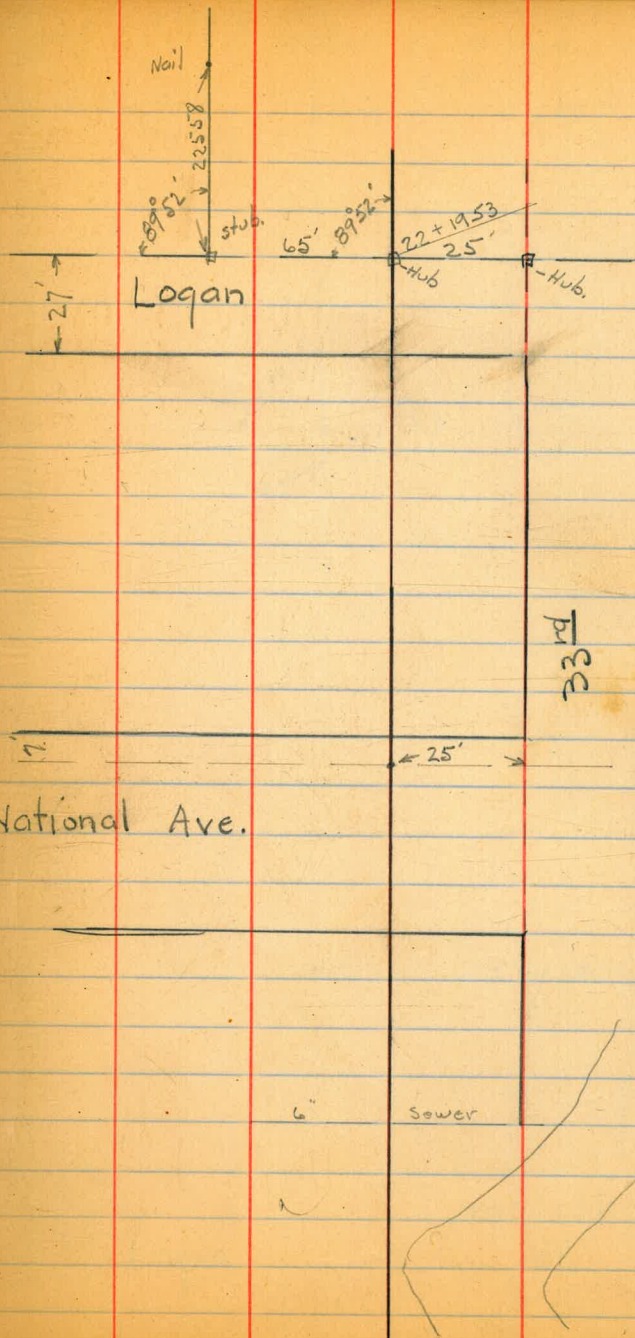 Nail
22558
89°52'
stub.
65'
89°52'
22+1953
25'
Hub
Hub.
27'
Logan
33rd
7'
25'
National Ave.
6" Sewer